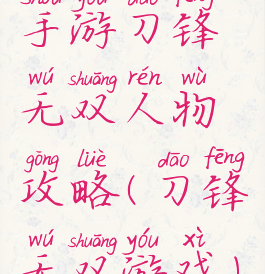 shǒu yóu dāo fēng
手游刀锋
wú shuāng rén wù
无双人物
gōng lüè dāo fēng
攻略(刀锋
wú shuāng yóu xì
无双游戏)